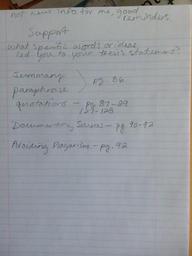 not new info for me, good
reminders
Support
what specific words or ideas
led you to your thesis statement?
Summary
paraphrase
pg. 86
quotations - pg 87-89
127-128
Documenting Sources - pg 90-92
Avoiding Plagarism - pg. 92